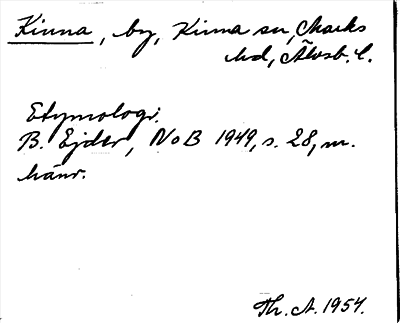 Kinna, by, Kinna sn, Marks
hd, Älvsb. l.
Etymologi.
B. Ejder, NoB 1949, s. 28, m.
hänv.
Th. A. 1954.